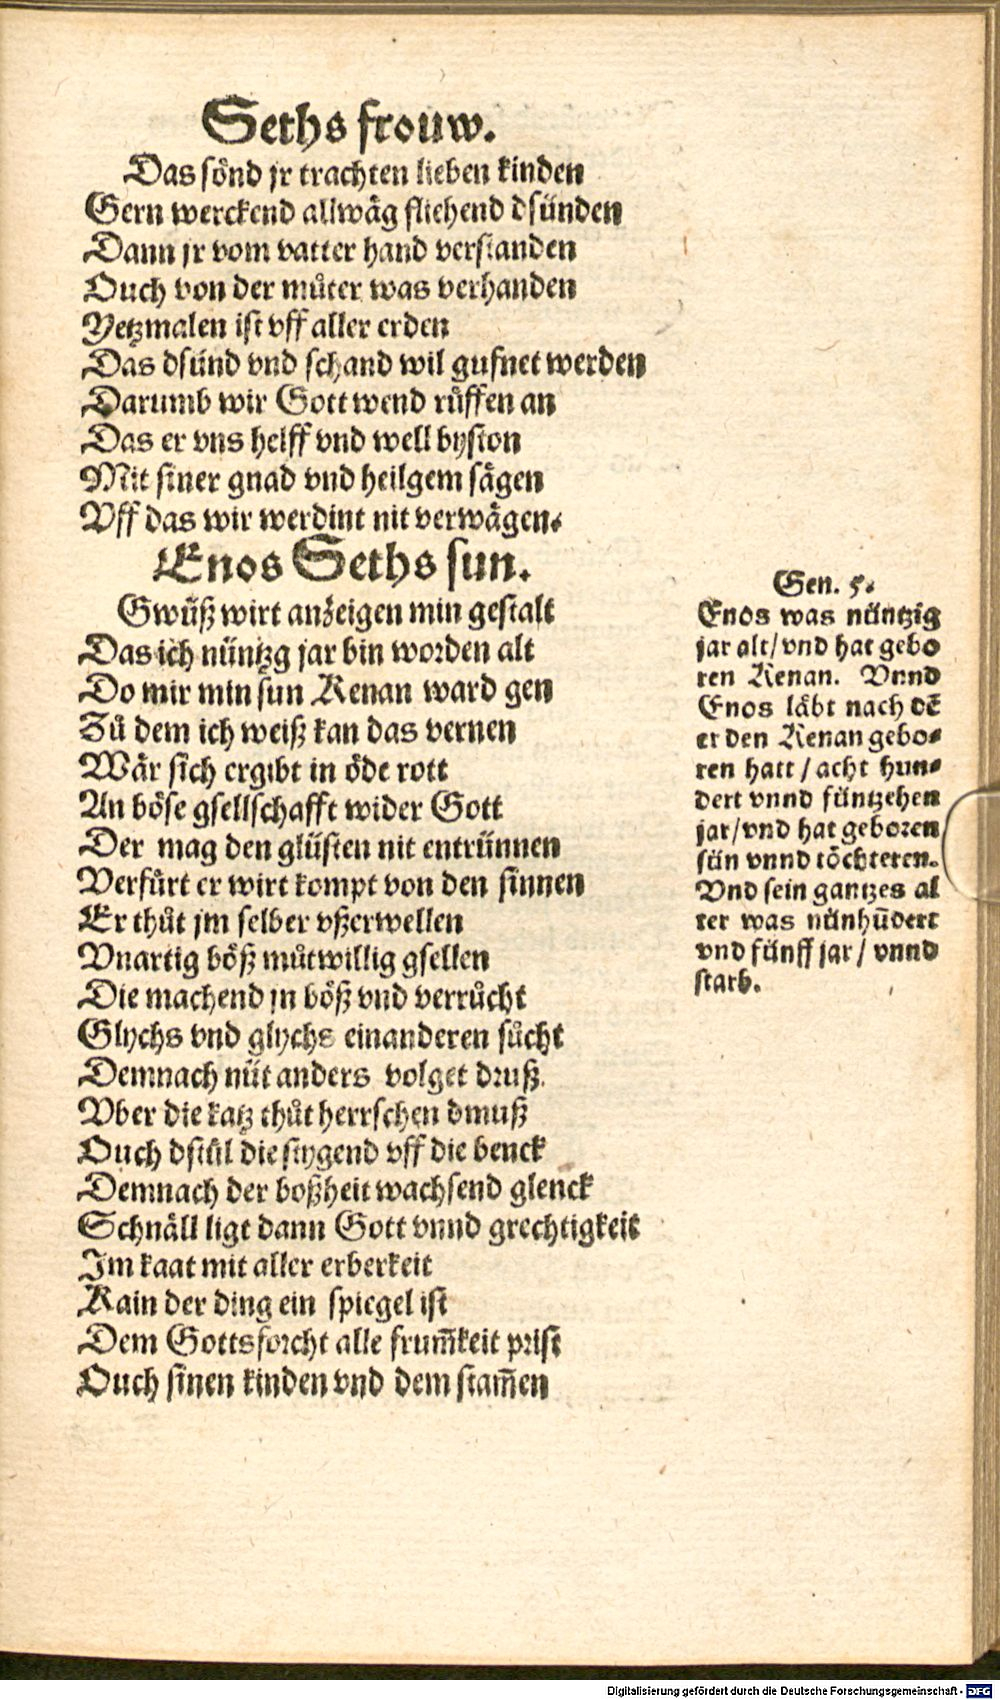 Seths frouw.
Das sönd jr trachten lieben kinden
Gern werckend allwäg fliehend dsünden
Dann jr vom vatter hand verstanden
Ouch von der muͦter was verhanden
Yetzmalen ist vff aller erden
Das dsünd vnd schand wil gufnet werden
Darumb wir Gott wend ruͤffen an
Das er vns helff vnd well byston
Mit siner gnad vnd heilgem sägen
Vff das wir werdint nit verwägen.
Enos Seths sun.
Gwüß wirt anzeigen min gestalt
Das ich nüntzg jar bin worden alt
Do mir min sun Kenan ward gen
Zuͦ dem ich weiß kan das vernen
Wär sich ergibt in öde rott
An böse gsellschafft wider Gott
Der mag den glüsten nit entrünnen
Verfürt er wirt kompt von den sinnen
Er thuͦt jm selber vßerwellen
Vnartig böß muͦtwillig gsellen
Die machend jn böß vnd verruͤcht
Glychs vnd glychs einanderen suͦcht
Demnach nüt anders volget druß
Vber die katz thuͦt herrschen dmuß
Ouch dstül die stygend vff die benck
Demnach der boßheit wachsend glenck
Schnäll ligt dann Gott vnnd grechtigkeit
Im kaat mit aller erberkeit
Kain der ding ein spiegel ist
Dem Gottsforcht alle frum̃keit prist
Ouch sinen kinden vnd dem stam̃en
Gen. 5.
Enos was nüntzig
jar alt/ vnd hat gebo
ren Kenan. Vnnd
Enos läbt nach dẽ
er den Kenan gebo⸗
ren hatt / acht hun⸗
dert vnnd füntzehen
jar/ vnd hat geboren
sün vnnd töchteren.
Vnd sein gantzes al
ter was nünhũdert
vnd fünff jar / vnnd
starb.
Digitalisierung gefördert durch die Deutsche Forschungsgemeinschaft - DFG